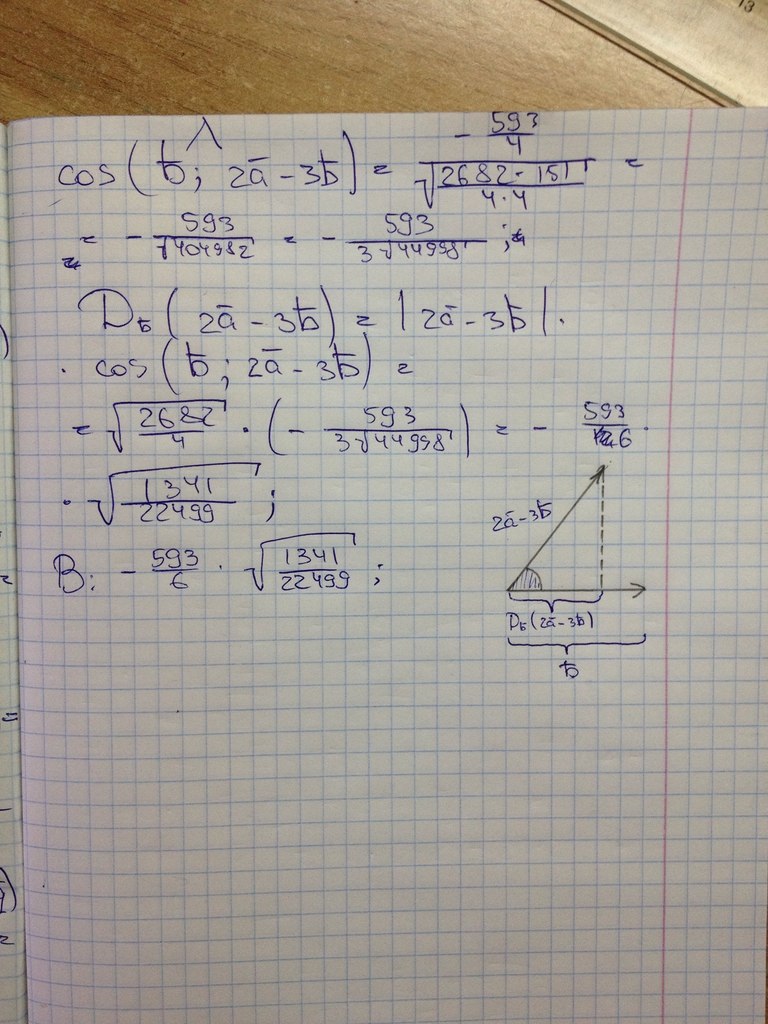 cos(b̄; 2ā - 3b̄) = (-593/4) / √(2682·151 / 4·4) =
= -593/√404982 = -593/(3√44998);
D_b̄(2ā - 3b̄) = |2ā - 3b̄| ·
· cos(b̄; 2ā - 3b̄) =
= √(2682/4) · (-593/(3√44998)) = -593/6 ·
· √(1341/22499);
В: -593/6 · √(1341/22499);
2ā - 3b̄
D_b̄(2ā - 3b̄)
b̄
13